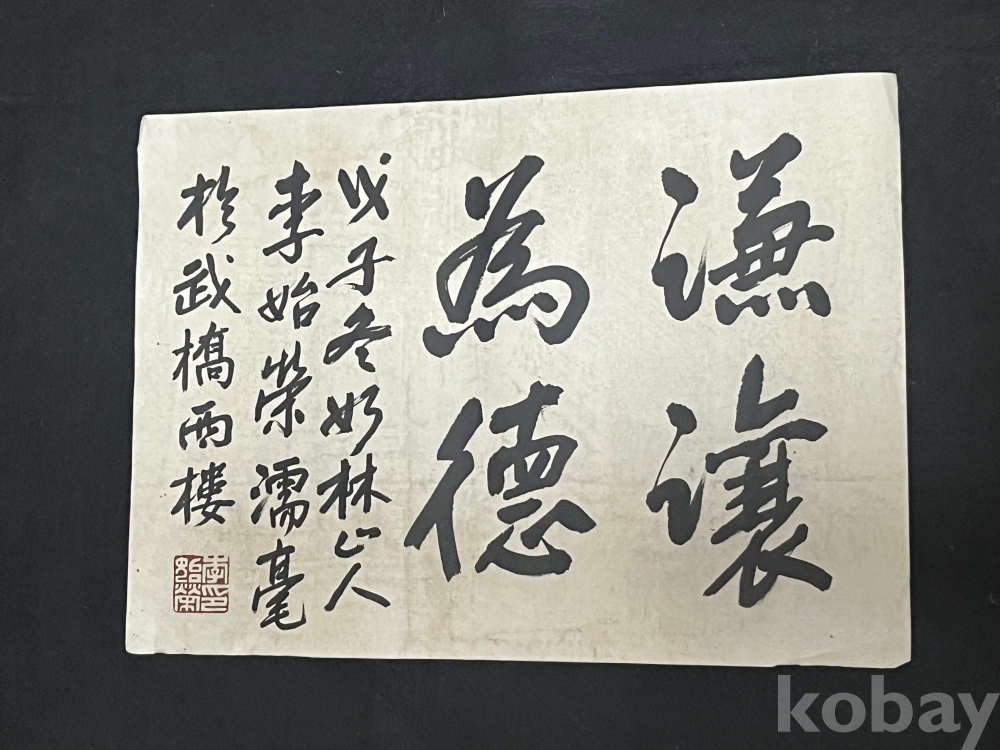 謙讓
為德
戊子冬始林山人
李始榮濡毫
於武橋西樓
李印始榮
kobay